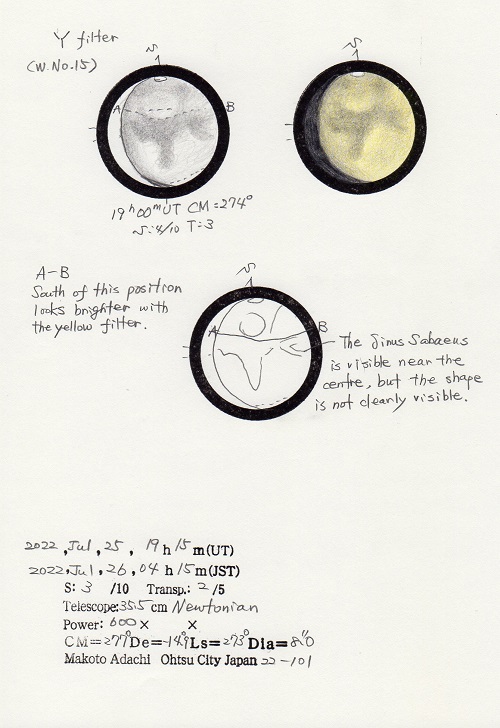 Y filter
(W.No.15)
S
S
A
B
19h00mUT CM=274°
S:4/10 T=3
A-B
South of this position
looks brighter with
the yellow filter.
S
A
B
The Sinus Sabaeus
is visible near the
centre, but the shape
is not clearly visible.
2022, Jul, 25, 19h 15m(UT)
2022, Jul, 26, 04h 15m(JST)
S: 3 /10 Transp.: 2 /5
Telescope: 35.5 cm Newtonian
Power: 600 × ×
CM=277° De=-14.9 Ls=273° Dia=8."0
Makoto Adachi Ohtsu City Japan 22-101